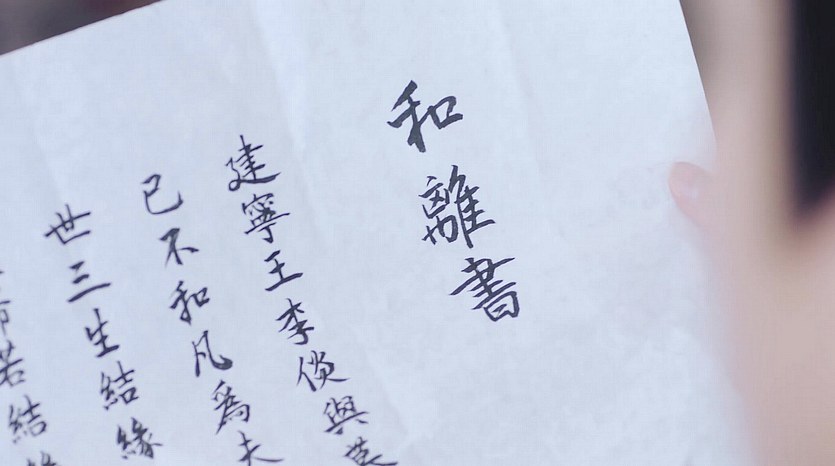 和離書
建寧王李倓與慕
已不和凡為夫
世三生結緣
若結緣